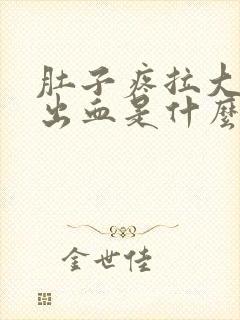 肚子疼拉大
出血是什麼
金世佳